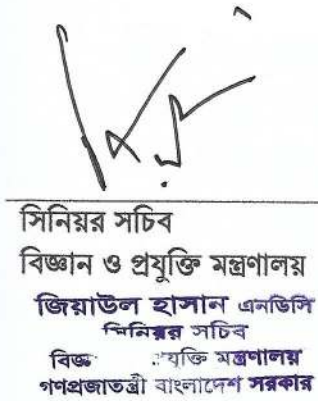 সিনিয়র সচিব
বিজ্ঞান ও প্রযুক্তি মন্ত্রণালয়
জিয়াউল হাসান এনডিসি
সিনিয়র সচিব
মন্ত্রণালয়
গণপ্রজাতন্ত্রী বাংলাদেশ সরকার